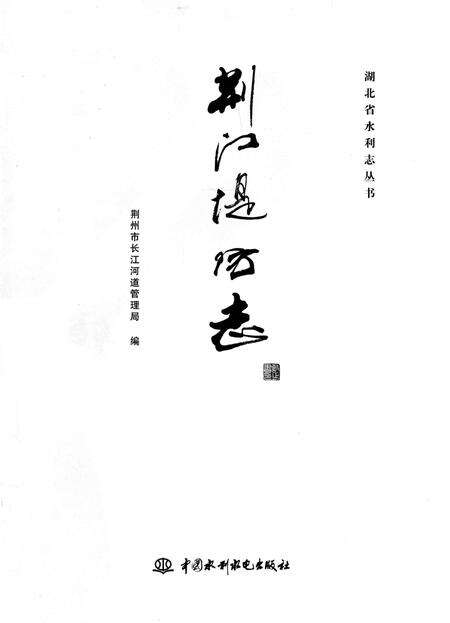 湖北省水利志丛书
荆江堤防志
荆州市长江河道管理局 编
中国水利水电出版社